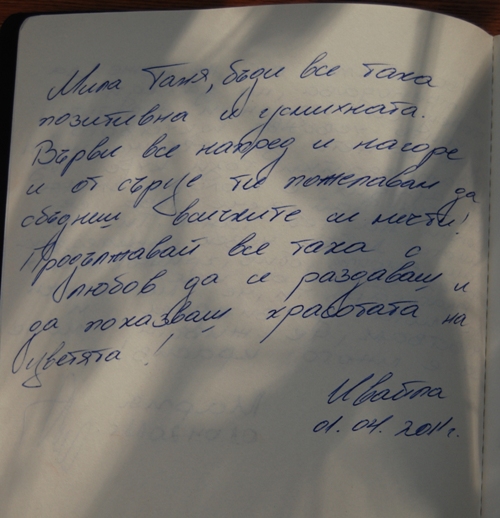 Мила Таня, бъди все така
позитивна и усмихната.
Върви все напред и нагоре
и от сърце ти пожелавам да
сбъднеш всичките си мечти!
Продължавай все така с
любов да се раздаваш и
да показваш красотата на
цветята!
Ивайла
01.04.2011г.